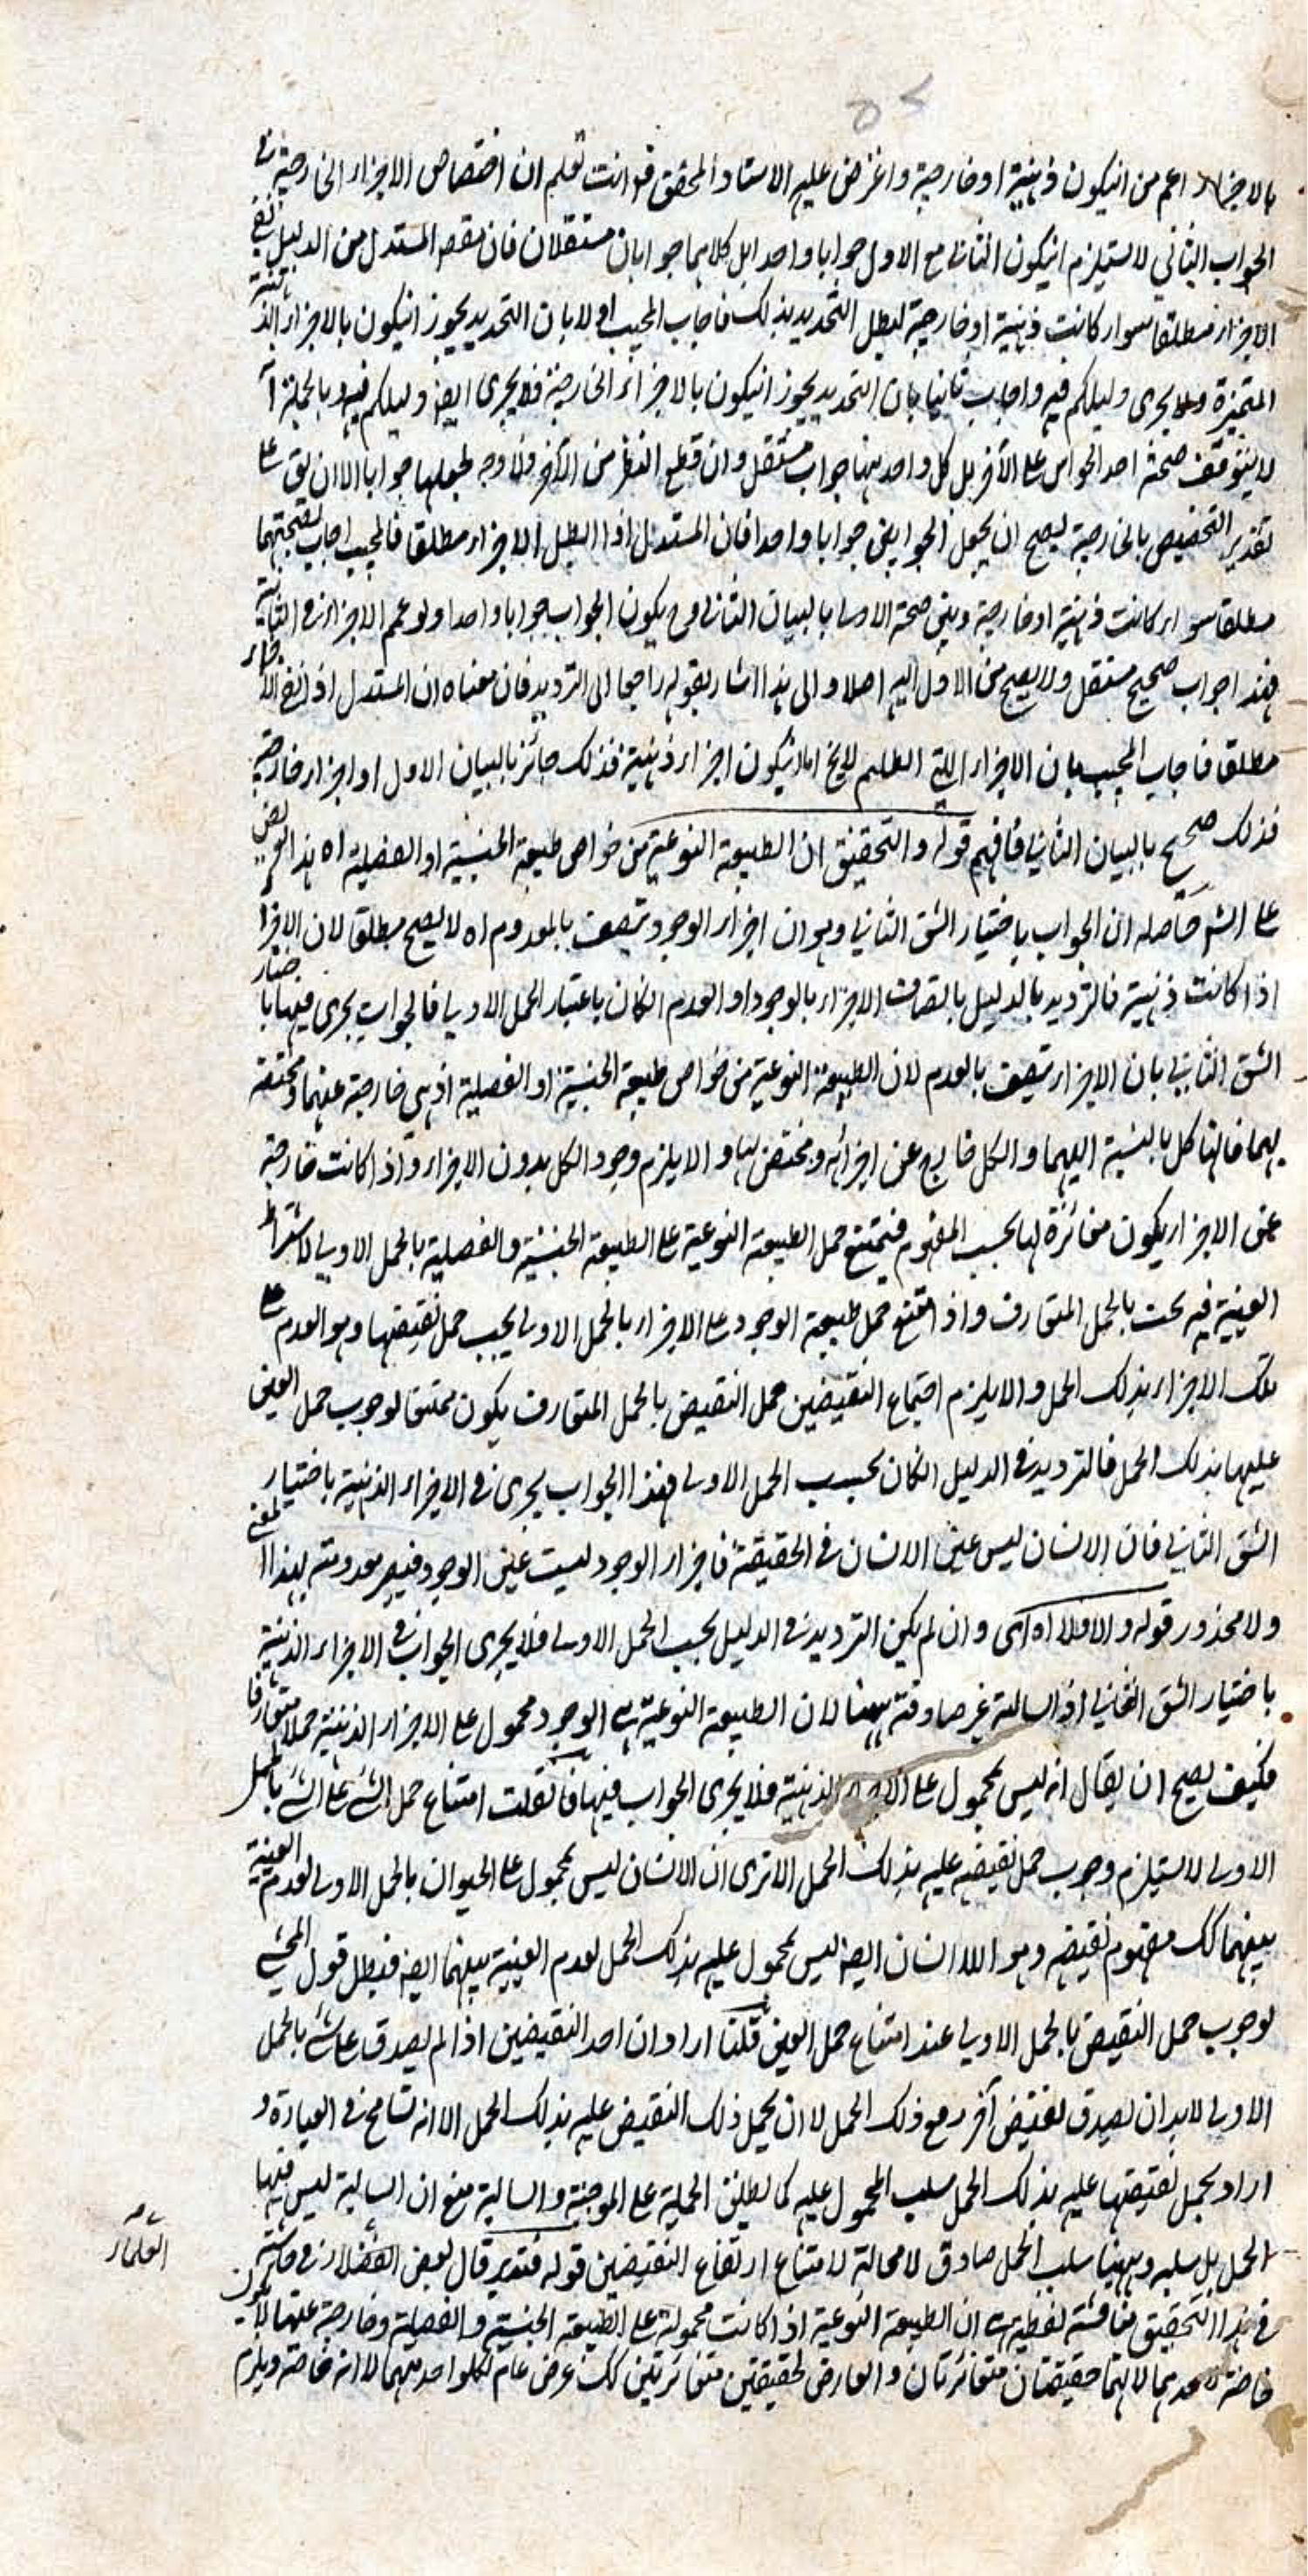 بالاجزاء اعم من انيكون ذهنية او خارجية واعترض عليه الاستاد المحقق قو انت تعلم ان اختصاص الاجزاء الخارجية في
الجواب الثاني لا يستلزم انيكون الثاني مع الاول جوابا واحدا بل كلاهما جوابان مستقلان فان مقصد المستدل من الدليل نفي
الاجزاء مطلقا سواء كانت ذهنية او خارجية ليبطل التحديد بذلك فاجاب المجيب اولا بان التحديد يجوز انيكون بالاجزاء الذهنية
المتميزة ولا يجرى دليلكم فيه واجاب ثانيا بان التحديد يجوز انيكون بالاجزاء الخارجية فلا يجرى ايضا دليلكم فيه وبالجملة
لا يتوقف صحة احد الجوابين على الآخر بل كل واحد منهما جواب مستقل وان قطع النظر من الآخر فلا وجه لجعلهما جوابا الا ان يق على
تقدير التخصيص بالخارجية ليصح ان يجعل الجوابين جوابا واحدا فان المستدل اذا ابطل الاجزاء مطلقا فالمجيب اجاب بصحتهما
مطلقا سواء كانت ذهنية او خارجية وبين صحة الاولى بالبيان الثاني فح يكون الجواب جوابا واحدا ولو عمم الاجزاء في الثانية
فهذا جواب صحيح مستقل ولا يصح من الاول اليه اصلا والى هذا اشار بقوله راجعا الى الترديد فان معناه ان المستدل اذا نفى الاجزاء
مطلقا فاجاب المجيب بان الاجزاء اللتي ابطلتم لا يخ اما انيكون اجزاء ذهنية فذلك جائز بالبيان الاول او اجزاء خارجية
فذلك صحيح بالبيان الثاني فافهم قوله والتحقيق ان الطبيعة النوعية من خواص طبيعة الجنسية او الفصلية اه هذا تعريض
على الشر حاصله ان الجواب باختيار الشق الثاني وهو ان اجزاء الوجود تتصف بالمعدوم اه لا يصح مطلقا لان الاجزاء
اذا كانت ذهنية فالترديد بالدليل باتصاف الاجزاء بالوجود او العدم انكان باعتبار الحمل الاولي فالجواب يجرى فيها باختيار
الشق الثاني بان الاجزاء تتصف بالعدم لان الطبيعة النوعية من خواص طبيعة الجنسية او الفصلية اذ هي خارجة عنهما ومختصة
بهما فانها كل بالنسبة اليهما والكل خارج عن اجزائه ومختص بها والا يلزم وجود الكل بدون الاجزاء واذا كانت خارجة
عن الاجزاء يكون مغائرة لها بحسب المفهوم فيمتنع حمل الطبيعة النوعية على الطبيعة الجنسية والفصلية بالحمل الاولي لاشتراط
العينية فيه بحت بالحمل المتعارف واذا امتنع حمل طبيعة الوجود على الاجزاء بالحمل الاولى يجب حمل نقيضها وهو العدم على
تلك الاجزاء بذلك الحمل والا يلزم اجتماع النقيضين حمل النقيض بالحمل المتعارف يكون ممتنعا لوجوب حمل العين
عليها بذلك الحمل فالترديد في الدليل انكان بحسب الحمل الاولى فهذا الجواب يجرى في الاجزاء الذهنية باختيار
الشق الثاني فان الانسان ليس عين الانسان في الحقيقة فاجزاء الوجود ليست عين الوجود فيصير معدومة بهذا المعنى
ولا محذور قوله والا فلا اه اى وان لم يكن الترديد في الدليل بحسب الحمل الاولى فلا يجرى الجواب في الاجزاء الذهنية
باختيار الشق الثاني اذ السالبة غير صادقة ههنا لان الطبيعة النوعية اى الوجود محمول على الاجزاء الذهنية حملا متعارفا
فكيف يصح ان يقال انه ليس بمحمول على الاجزاء الذهنية فلا يجرى الجواب فيها فانقلت امتناع حمل الشئ على الشئ بالحمل
الاولى لا يستلزم وجوب حمل نقيضه عليه بذلك الحمل الا ترى ان الانسان ليس بمحمول على الحيوان بالحمل الاولى لعدم العينية
بينهما كك مفهوم نقيضه وهو اللا انسان ايضا ليس بمحمول عليه بذلك الحمل لعدم العينية بينهما ايضا فبطل قول المحشي
لوجوب حمل النقيض بالحمل الاولي عند امتناع حمل العين قلنا اراد ان احد النقيضين اذا لم يصدق على شئ بالحمل
الاولى لا بد ان يصدق نقيض آخر مع ذلك الحمل لا ان يحمل ذلك النقيض عليه بذلك الحمل الا انه تسامح في العبارة و
اراد بحمل نقيضها عليه بذلك الحمل سلب المحمول عليه كما يطلق الحملية على الموجبة والسالبة مع ان السالبة ليس فيها
الحمل بل سلبه وههنا سلب الحمل صادق لا محالة لامتناع ارتفاع النقيضين قوله فتدبر قال بعض الفضلاء في حاشية
في هذا التحقيق مناقشة لفظية اى ان الطبيعة النوعية اذا كانت محمولة على الطبيعة الجنسية والفصلية وخارجة عنهما لا يكون
خاصة لاحدهما لانهما حقيقتان متغائرتان والعارض لحقيقتين متغائرتين كك عرض عام لكلواحد منهما لا انه خاصة ويلزم
العلماء